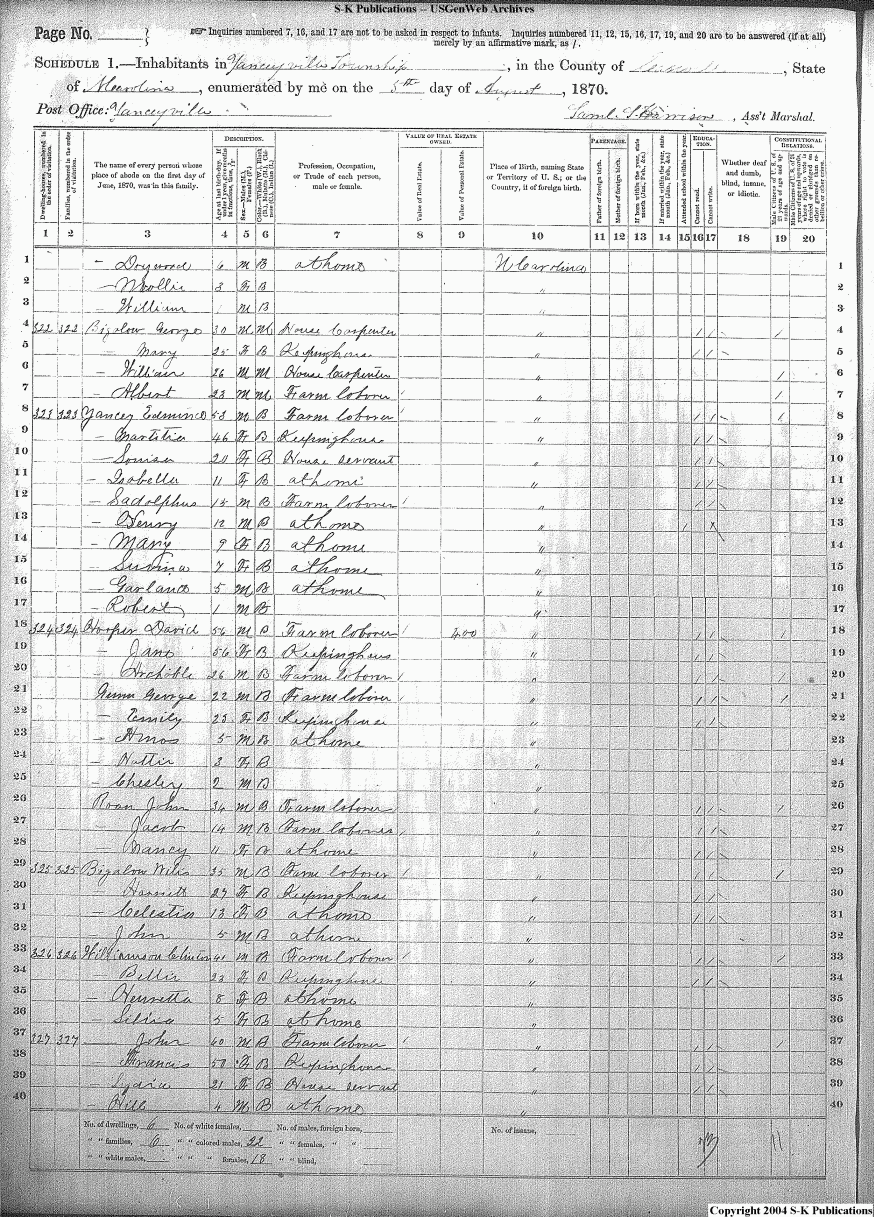 S-K Publications -- USGenWeb Archives
Page No.
Inquiries numbered 7, 16, and 17 are not to be asked in respect to infants. Inquiries numbered 11, 12, 15, 16, 17, 19, and 20 are to be answered (if at all) merely by an affirmative mark, as /.
SCHEDULE 1.—Inhabitants in Yanceyville Township, in the County of , State
of N Carolina, enumerated by me on the 8th day of August, 1870.
Post Office: Yanceyville Saml S Harrison, Ass't Marshal.
DESCRIPTION. VALUE OF REAL ESTATE OWNED. PARENTAGE. EDUCATION. CONSTITUTIONAL RELATIONS.
Dwelling-houses, numbered in the order of visitation. Families, numbered in the order of visitation. The name of every person whose place of abode on the first day of June, 1870, was in this family. Profession, Occupation, or Trade of each person, male or female. Value of Real Estate. Value of Personal Estate. Place of Birth, naming State or Territory of U. S.; or the Country, if of foreign birth. Father of foreign birth. Mother of foreign birth. Attended school within the year. Cannot read. Cannot write. Whether deaf and dumb, blind, insane, or idiotic.
1 2 3 4 5 6 7 8 9 10 11 12 13 14 15 16 17 18 19 20
1 — 6 M B at home N Carolina 1
2 — Mollie 3 F B " 2
3 William 1 M B " 3
4 322 322 Bigalow George 30 M M House Carpenter " / / / 4
5 — Mary 25 F B Keeping house " / / 5
6 — William 26 M M House Carpenter " / 6
7 — Albert 23 M M Farm laborer " / 7
8 323 323 Yancey Edmund 53 M B Farm laborer " / / / 8
9 — 46 F B Keeping house " / / 9
10 — Louisa 20 F B House servant " / / 10
11 — Isabella 11 F B at home " / / 11
12 — Sadolphus 15 M B Farm laborer " / / 12
13 — Henry 12 M B at home " / 13
14 — Mary 9 F B at home " 14
15 — 7 F B at home " 15
16 — Garland 5 M B at home " 16
17 — Robert 1 M B " 17
18 324 324 Hooper David 56 M B Farm laborer 400 " / / / 18
19 — Jane 56 F B Keeping house " / / 19
20 — 26 M B Farm laborer " / / 20
21 Gunn George 22 M B Farm laborer " / / / 21
22 — Emily 23 F B Keeping house " / / 22
23 — Amos 5 M B at home " 23
24 — Nattie 3 F B " 24
25 — Chesley 2 M B " 25
26 Roan John 34 M B Farm laborer " / / 26
27 — Jacob 14 M B Farm laborer " / / 27
28 — Nancy 11 F B at home " / / 28
29 325 325 Bigalow 35 M B Farm laborer " / / / 29
30 — Harriett 27 F B Keeping house " / / 30
31 — Celestia 13 F B at home " / / 31
32 — John 5 M B at home " 32
33 326 326 Williamson Clinton 41 M B Farm laborer " / / / 33
34 — Bettie 23 F B Keeping house " / / 34
35 — Henretta 8 F B at home " 35
36 — 5 F B at home " 36
37 327 327 — John 60 M B Farm laborer " / / 37
38 — Francis 50 F B Keeping house " / / 38
39 — Lydia 21 F B House servant " / / 39
40 — Hill 4 M B at home " 40
No. of dwellings, 6 No. of white females, No. of males, foreign born, No. of insane, 11
" " families, 6 " " colored males, 22 " " females, " "
" " white males, " " " females, 18 " " blind,
Copyright 2004 S-K Publications